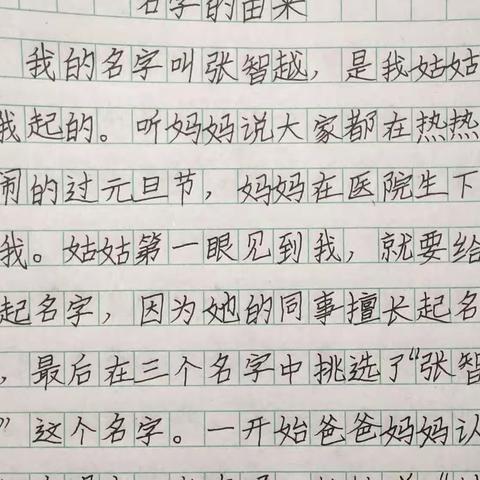 名字的由来
我的名字叫张智越，是我姑姑
我起的。听妈妈说大家都在热热
闹的过元旦节，妈妈在医院生下
我。姑姑第一眼见到我，就要给
起名字，因为她的同事擅长起名
，最后在三个名字中挑选了“张智
”这个名字。一开始爸爸妈妈认